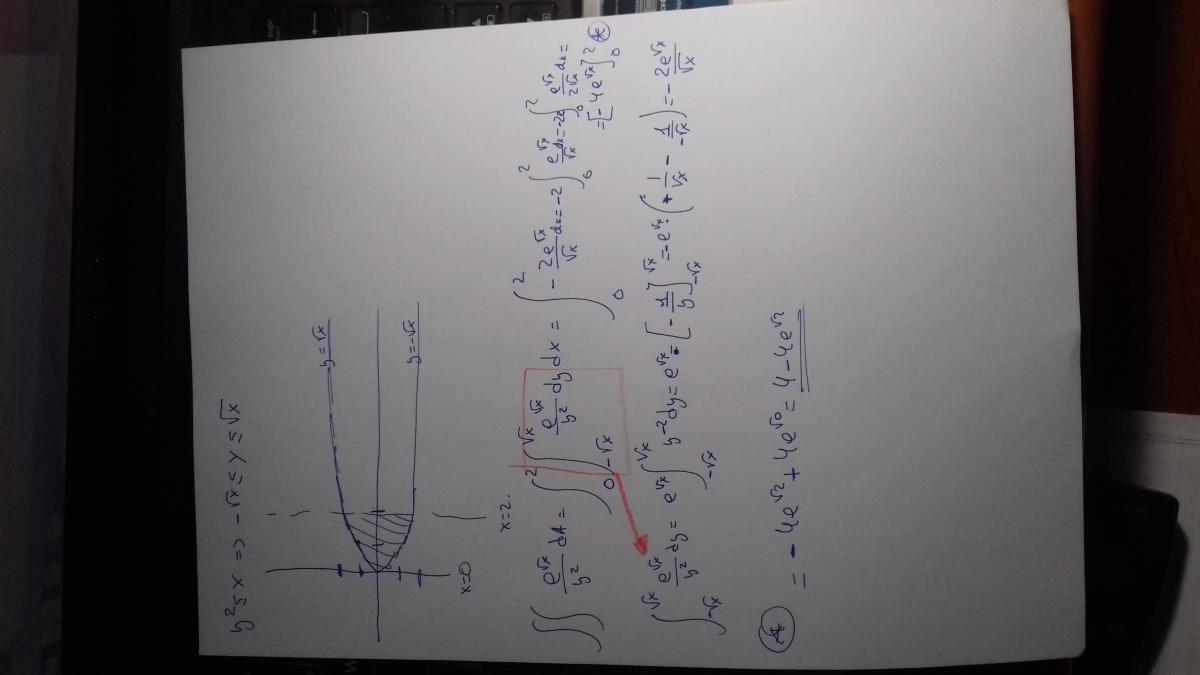 y² ≤ x => -√x ≤ y ≤ √x
y = √x
y = -√x
x=0
x=2.
∬ e^√x/y² dA = ∫₀² ∫_{-√x}^{√x} e^√x/y² dy dx = ∫₀² - 2e^√x/√x dx = -2 ∫₀² e^√x/√x dx = -2∫₀² e^√x/2√x dx =
= [-4e^√x]₀² (*)
∫_{-√x}^{√x} e^√x/y² dy = e^√x ∫_{-√x}^{√x} y⁻² dy = e^√x · [-1/y]_{-√x}^{√x} = -e^√x · (+1/√x - 1/-√x) = - 2e^√x/√x
(*) = -4e^√2 + 4e^√0 = 4 - 4e^√2
supr